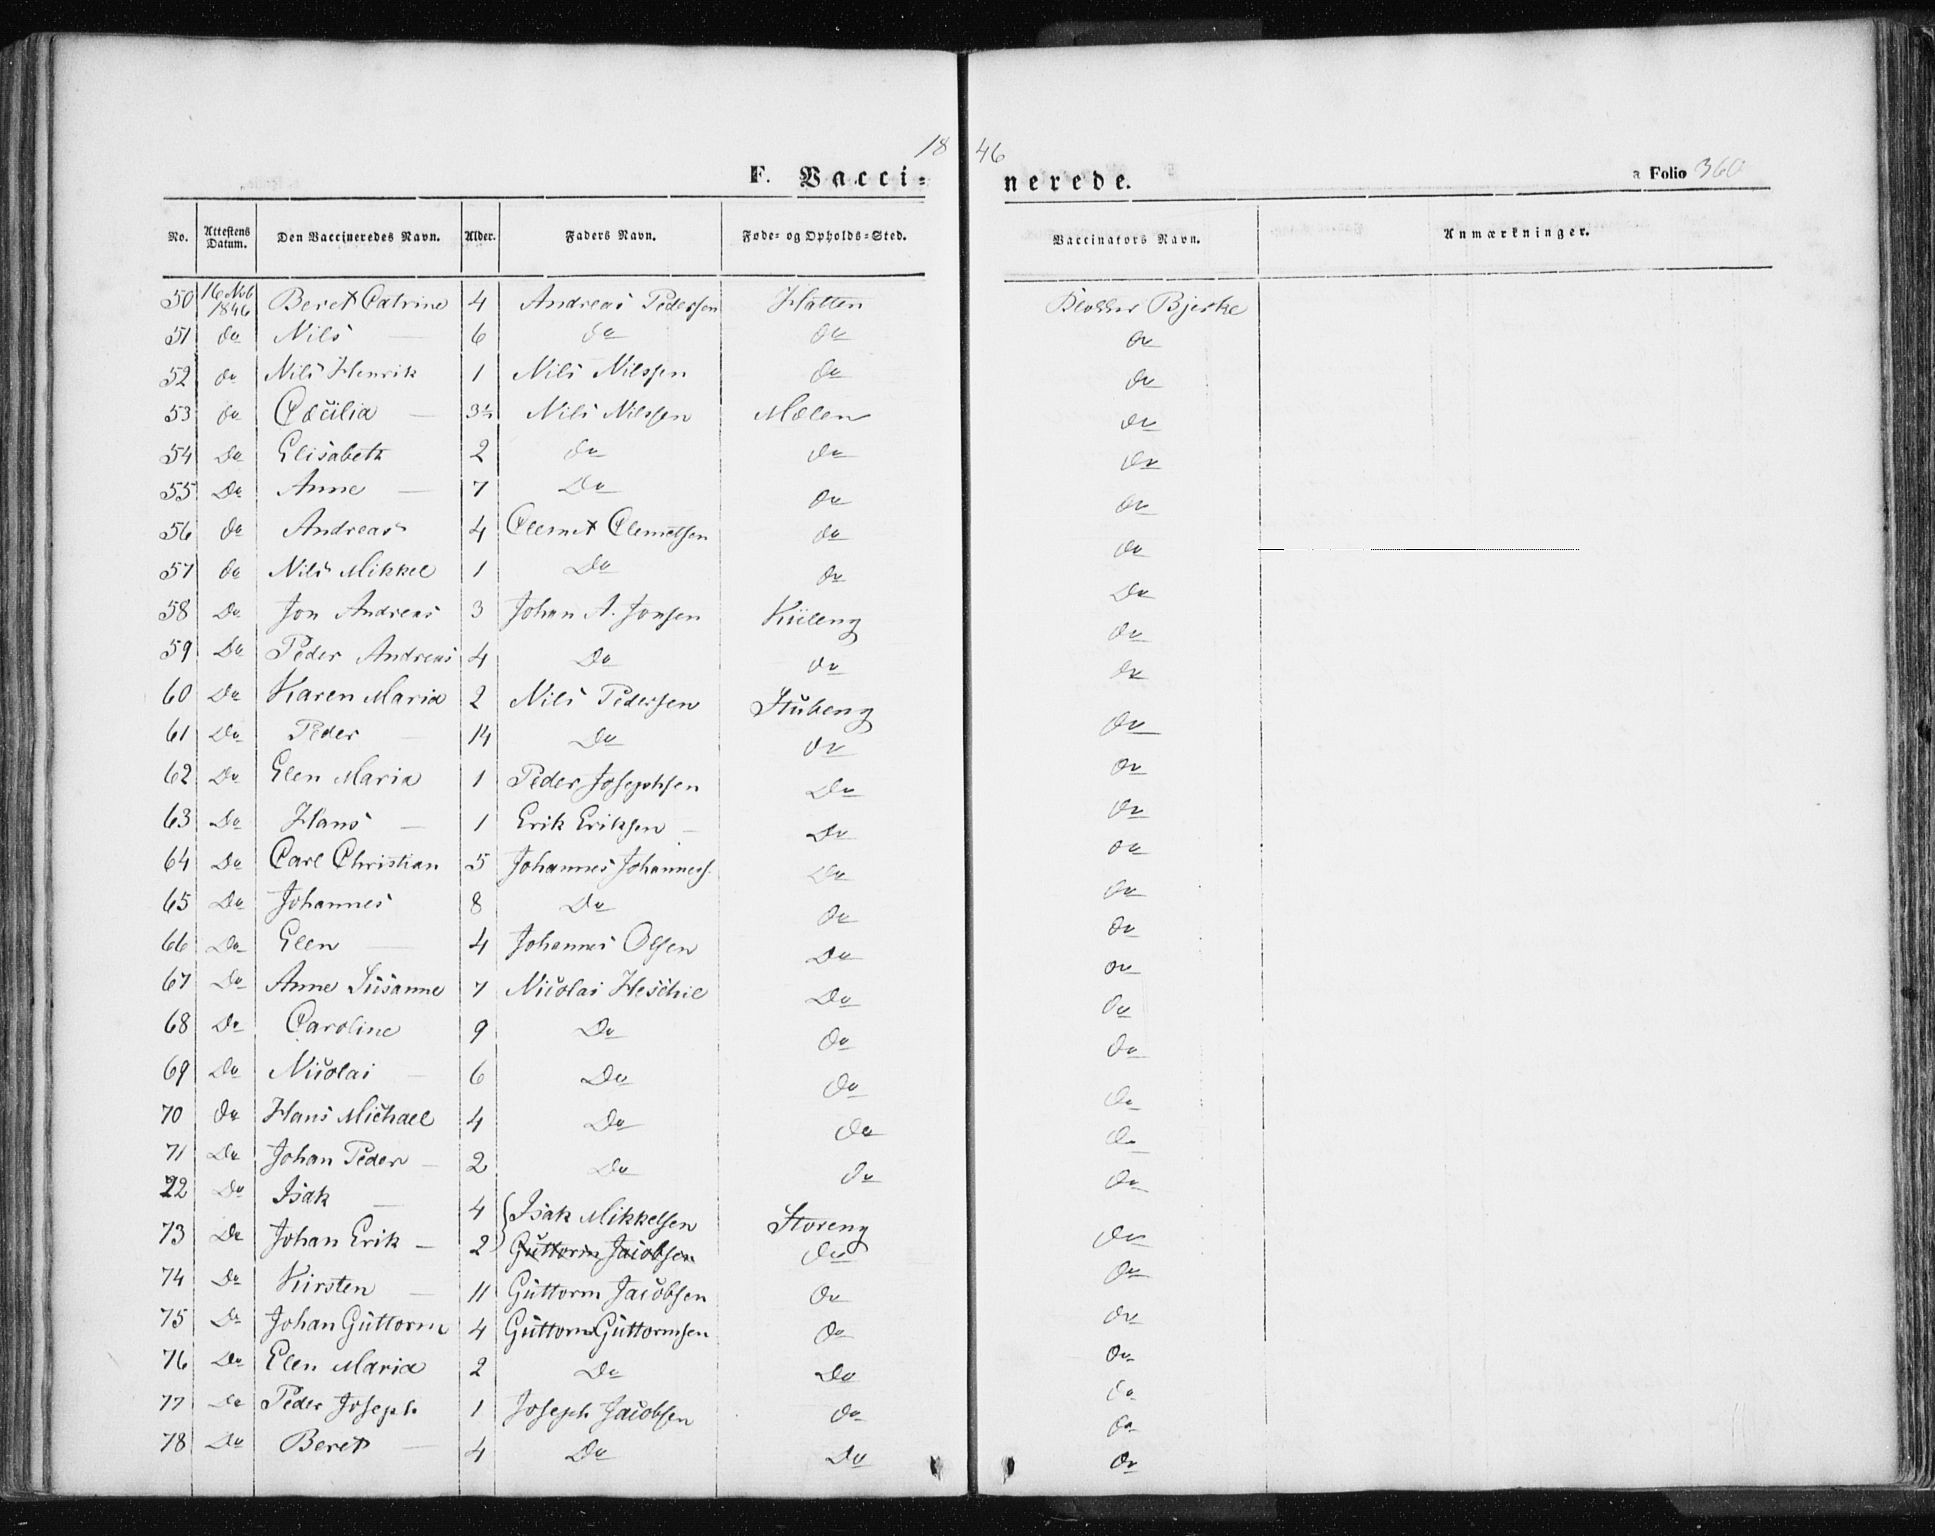 18 46
F. Vacci- nerede. a Folio 360
No. Attestens Datum. Den Vaccineredes Navn. Alder. Faders Navn. Føde- og Opholds-Sted. Vaccinators Navn. Anmærkninger.
50 16 1846 Beret Catrine 4 Andreas Pedersen Hatten Bjerke
51 do Nils — 6 do do do
52 do Nils Henrik 1 Nils Nilssen do do
53 do Cæcilia — 3½ Nils Nilssen Mælen do
54 Do Elisabeth 2 do do do
55 Do Anne — 7 Do do do
56 do Andreas 4 Clemet Clemetsen do do
57 do Nils Mikkel 1 Do do Do
58 Do Jon Andreas 3 Johan A. Jonsen Kileng do
59 Do Peder Andreas 4 Do do do
60 Do Karen Maria 2 Nils Pedersen Stubeng do
61 Do Peder — 14 Do do do
62 Do Elen Maria 1 Peder Josephsen Do do
63 Do Hans — 1 Erik Eriksen — Do do
64 Do Carl Christian 5 Johannes Johanness. Do do
65 Do Johannes 8 Do do do
66 Do Elen — 4 Johannes Olsen Do do
67 Do Anne Susanne 7 Nicolai Heschie Do do
68 Do Caroline 9 Do do do
69 Do Nicolai — 6 Do do do
70 do Hans Michael 4 Do do do
71 Do Johan Peder — 2 Do do do
72 Do Isak — 4 Isak Mikkelsen Storeng do
73 Do Johan Erik — 2 Guttorm Jacobsen do do
74 Do Kirsten — 11 Guttorm Jacobsen do do
75 Do Johan Guttorm 4 Guttorm Guttormsen do do
76 Do Elen Maria 2 Do Do do
77 Do Peder Joseph 1 Joseph Jacobsen do do
78 Do Beret — 4 Do Do do